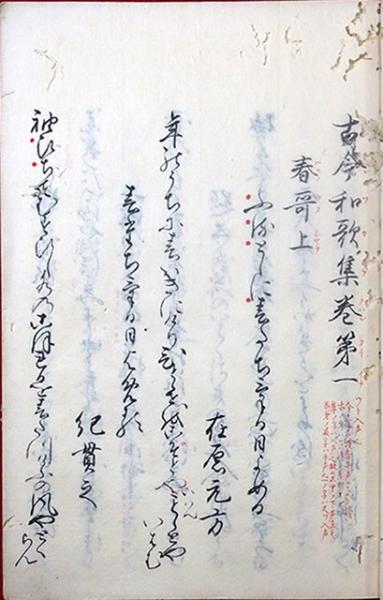 古今和歌集巻第一
春哥上
ふるとしに春たちける日よめる
在原元方
年のうちに春はきにけりひとゝせをこぞとやいはんことしとやいはむ
春たちける日よめる
紀貫之
袖ひちてむすひし水のこほれるを春たつけふの風やとくらん